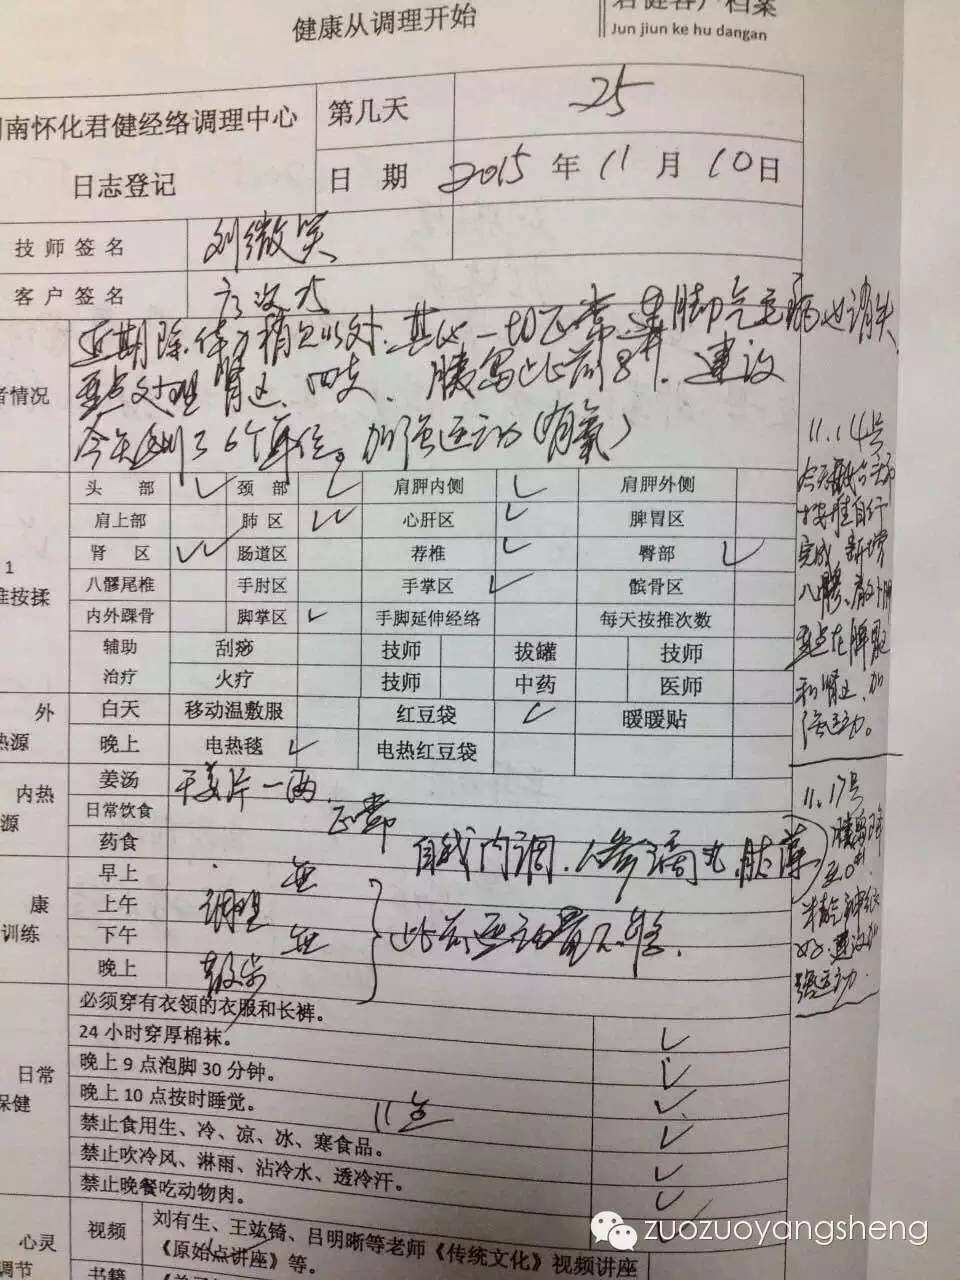 健康从调理开始
君健客户档案
Jun jiun ke hu dangan
南怀化君健经络调理中心
日志登记
第几天 25
日 期 2015 年 11 月 10 日
技 师 签 名 刘微笑
客 户 签 名
者情况
近期除体力稍欠以外,其他一切正常,连脚气毛病也消失
重点处理肾区、四支、胰岛比前8#,建议
6个单位。加强运动(有氧)
1
推按揉
头 部 颈 部 肩胛内侧 肩胛外侧
肩上部 肺 区 心肝区 脾胃区
肾 区 肠道区 荐椎 臀部
八髎尾椎 手肘区 手掌区 髌骨区
内外踝骨 脚掌区 手脚延伸经络 每天按推次数
辅助 刮痧 技师 拔罐 技师
治疗 火疗 技师 中药 医师
外
热源
白天 移动温敷服 红豆袋 暖暖贴
晚上 电热毯 电热红豆袋
内热
源
姜汤 干姜片一两
日常饮食 正常
药食 自我内调.人参
康
训练
早上 无
上午 调理
下午 无
晚上 散步
此前运动量不够.
日常
保健
必须穿有衣领的衣服和长裤。
24 小时穿厚棉袜。
晚上 9 点泡脚 30 分钟。
晚上 10 点按时睡觉。 11点
禁止食用生、冷、凉、冰、寒食品。
禁止吹冷风、淋雨、沾冷水、透冷汗。
禁止晚餐吃动物肉。
心灵
调节
视频 刘有生、王竑锜、吕明晰等老师《传统文化》视频讲座
《原始点讲座》等。
书籍
11.14号
完成,新增
八髎、
重点在脾胃
和肾区,加
强运动。
11.17号
胰岛降
至0#
建议加
强运动.
zuozuoyangsheng